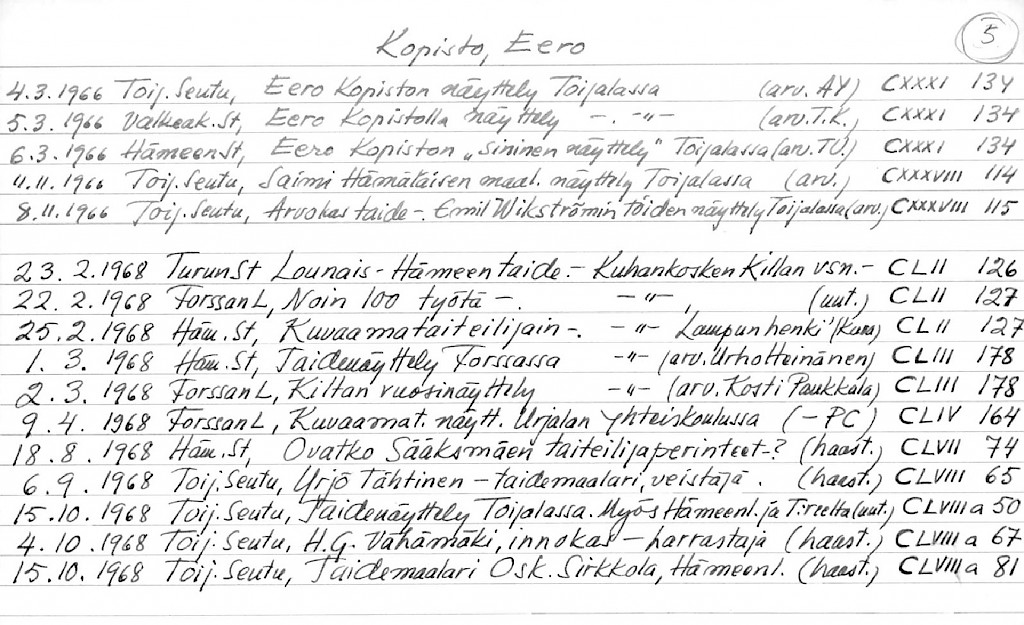 5
Kopisto, Eero
4.3.1966 Toij. Seutu, Eero Kopiston näyttely Toijalassa (arv. AY) CXXXI 134
5.3.1966 Valkeak. St, Eero Kopistolla näyttely -. -"- (arv. T.K.) CXXXI 134
6.3.1966 Hämeen St, Eero Kopiston "sininen näyttely" Toijalassa (arv. TU.) CXXXI 134
4.11.1966 Toij. Seutu, Saimi Hämäläisen maal. näyttely Toijalassa (arv.) CXXXVIII 114
8.11.1966 Toij. Seutu, Arvokas taide-. Emil Wikströmin töiden näyttely Toijalassa (arv.) CXXXVIII 115
23.2.1968 Turun St Lounais-Hämeen taide.- Kuhankosken Killan vsn.- CLII 126
22.2.1968 Forssan L, Noin 100 työtä -. -"-, (uut.) CLII 127
25.2.1968 Häm. St, Kuvaamataiteilijain-. -"- Lampun henki' (Kuva) CLII 127
1.3.1968 Häm. St, Taidenäyttely Forssassa -"- (arv. Urho Heinänen) CLIII 178
2.3.1968 Forssan L, Killan vuosinäyttely -"- (arv. Kosti Paukkala) CLIII 178
9.4.1968 Forssan L, Kuvaamat. näytt. Urjalan Yhteiskoulussa (-PC) CLIV 164
18.8.1968 Häm. St, Ovatko Sääksmäen taiteilijaperinteet-? (haast.) CLVII 74
6.9.1968 Toij. Seutu, Yrjö Tähtinen - taidemaalari, veistäjä. (haast.) CLVIII 65
15.10.1968 Toij. Seutu, Taidenäyttely Toijalassa. Myös Hämeenl. ja T:reelta (uut.) CLVIII a 50
4.10.1968 Toij. Seutu, H.G. Vähämäki, innokas - harrastaja (haast.) CLVIII a 67
15.10.1968 Toij. Seutu, Taidemaalari Osk. Sirkkola, Hämeenl. (haast.) CLVIII a 81